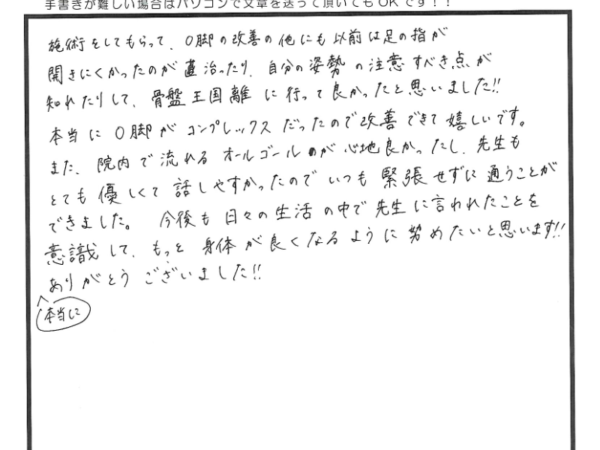 手書きが難しい場合はパソコンで文章を送って頂いてもOKです！！
施術をしてもらって、O脚の改善の他にも以前は足の指が
開きにくかったのが直治ったり、自分の姿勢の注意すべき点が
知れたりして、骨盤王国離に行って良かったと思いました!!
本当にO脚がコンプレックスだったので改善できて嬉しいです。
また、院内で流れるオルゴールのが心地良かったし、先生も
とても優しくて話しやすかったのでいつも緊張せずに通うことが
できました。今後も日々の生活の中で先生に言われたことを
意識して、もっと身体が良くなるように努めたいと思います!!
ありがとうございました!!
本当に